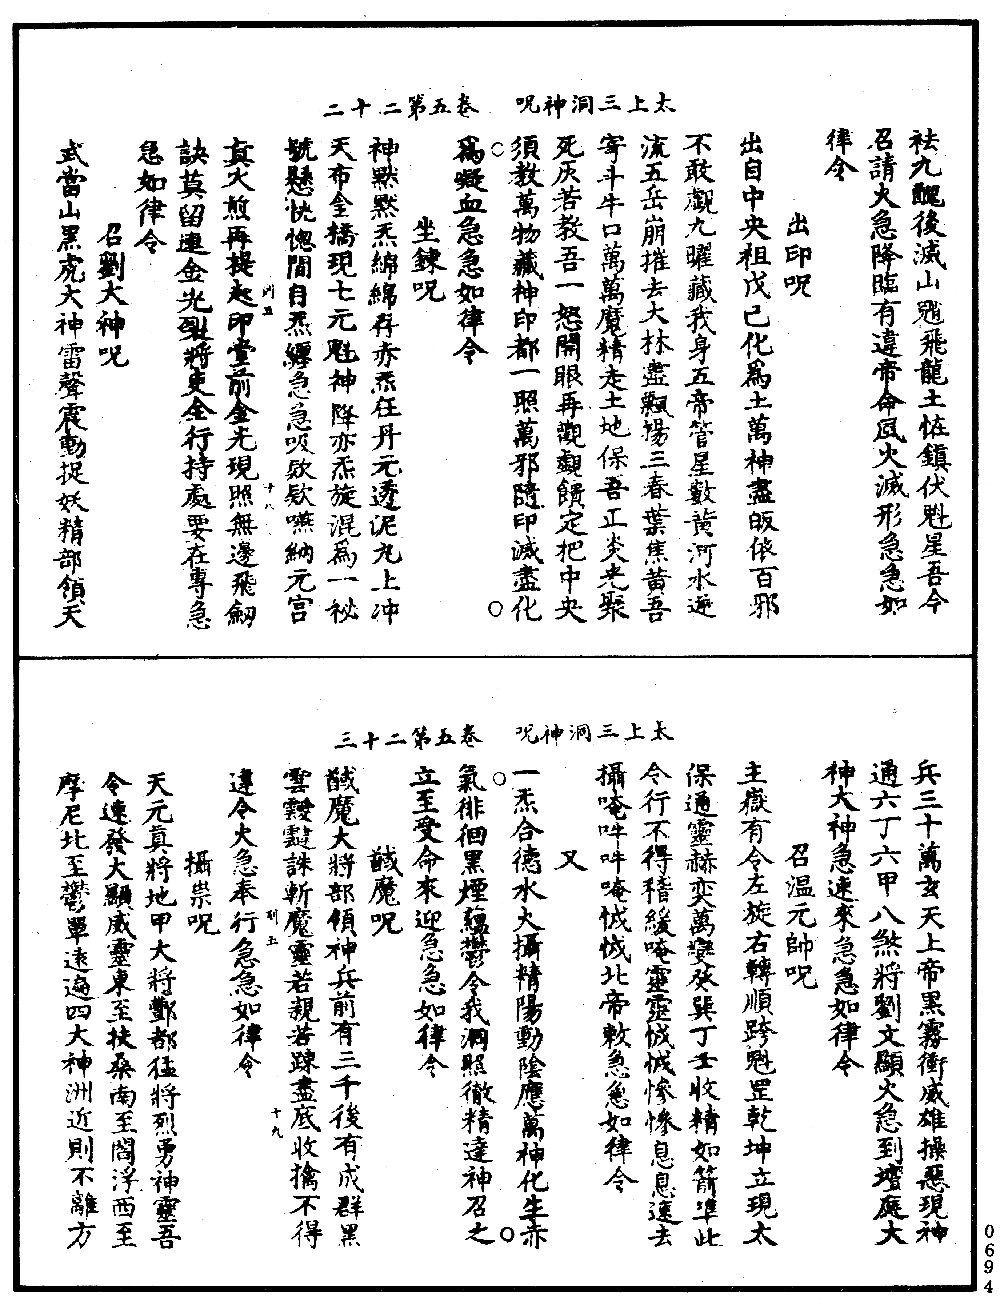 太上三洞神呪　卷五第二十二
袪九醜後滅山魈飛龍土恠鎮伏魁星吾今
召請火急降臨有違帝命風火滅形急急如
律令
出印呪
出自中央祖戊己化爲土萬神盡皈依百邪
不敢觀九曜藏我身五帝管星數黃河水逆
流五岳崩摧去大林盡飄揚三春葉焦黃吾
寄斗牛口萬萬魔精走土地保吾正炎光聚
死灰若教吾一怒開眼再觀覷饋定把中央
須教萬物藏神印都一照萬邪隨印滅盡化
爲凝血急急如律令
坐鍊呪
神默默炁綿綿存赤炁在丹元透泥丸上冲
天布金橋現七元魁神降赤炁旋混爲一祕
號懸恍惚間自炁纏急急吸欵欵嚥納元宮
真火煎再提起印堂前金光現照無邊飛劒
訣莫留連金光烈將吏全行持處要在專急
急如律令
召劉大神呪
式當山黑虎大神雷聲震動捉妖精部領天
太上三洞神呪　卷五第二十三
兵三十萬玄天上帝黑霧衝威雄操惡現神
通六丁六甲八煞將劉文顯火急到壇庭大
神大神急速來急急如律令
召温元帥呪
主嶽有令左旋右轉順跨魁罡乾坤立現太
保通靈赫奕萬變癸巽丁壬收精如箭準此
令行不得稽緩唵靈靈悈悈慘慘息息速去
攝唵吽吽唵悈悈北帝敕急急如律令
又
一炁合德水火攝精陽動陰應萬神化生赤
氣徘徊黑煙藴鬱令我洞照徹精達神召之
立至受命來迎急急如律令
馘魔呪
馘魔大將部領神兵前有三千後有成群黑
雲靉靆誅斬魔靈若親若踈盡底收擒不得
違令火急奉行急急如律令
攝祟呪
天元真將地甲大將酆都猛將烈勇神靈吾
令速發大顯威靈東至扶桑南至閻浮西至
摩尼北至鬱單遠遍四大神洲近則不離方
十八
十九
0694